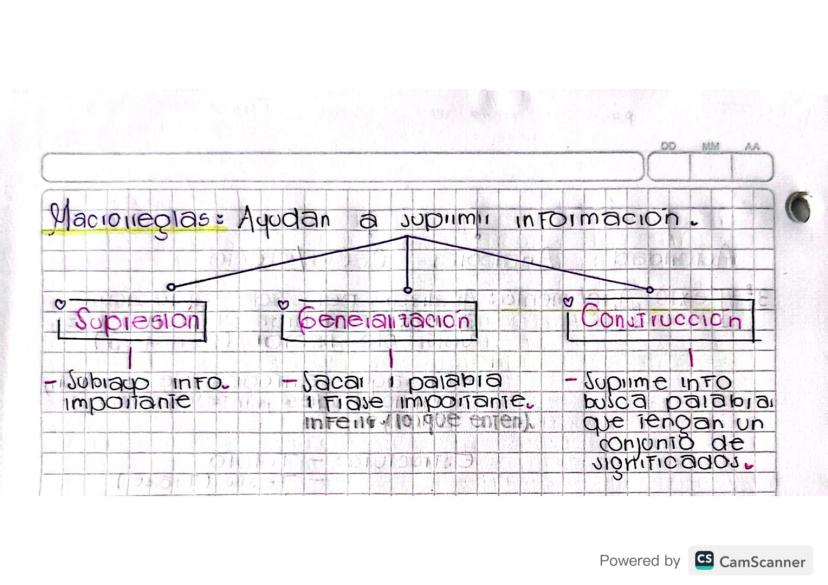 DD MM AA
Macrorreglas: Ayudan a suprimir información.
Supresion
Generalización
Construcción
- Subrayo info.
importante
- Sacar 1 palabra
1 frase importante.
inferir (lo que enten).
- Suprime info
busca palabra
que tengan un
conjunto de
significados.
Powered by CS CamScanner